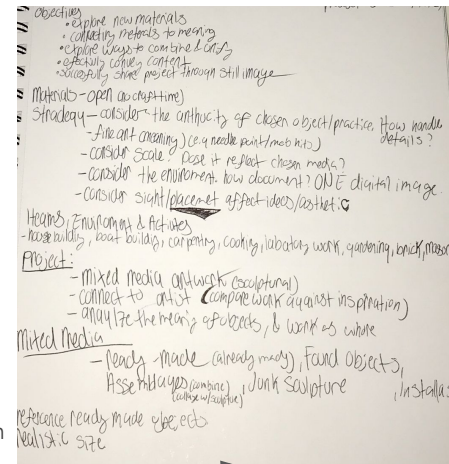 Objectives
• explore new materials
• connecting materials to meaning
• explore ways to combine & unify
• effectively convey content
• successfully share project through still image
Materials - open (no craft time)
Stradegy - consider the anthucity of chosen object/practice. How handle details?
- fine art (e.g needle point/mob kits)
- consider scale? Dose it reflect chosen media?
- consider the enviroment. how document? ONE digital image.
- consider sight/placemet affect ideas/asthetic
Heams, Enviroment & Activites
- house building, boat building, carpenting, cooking, labatory work, gardening, brick, mason
Project:
- mixed media artwork (sculptural)
- connect to artist (compare work against inspiration)
- anaylize the meaning of objects, & work as whole
Mixed Media
- ready-made (already made), Found Objects,
Assemblages (combine) (collage w/sculptue), Junk Sculpture, Installa
reference ready made objects
realistic size